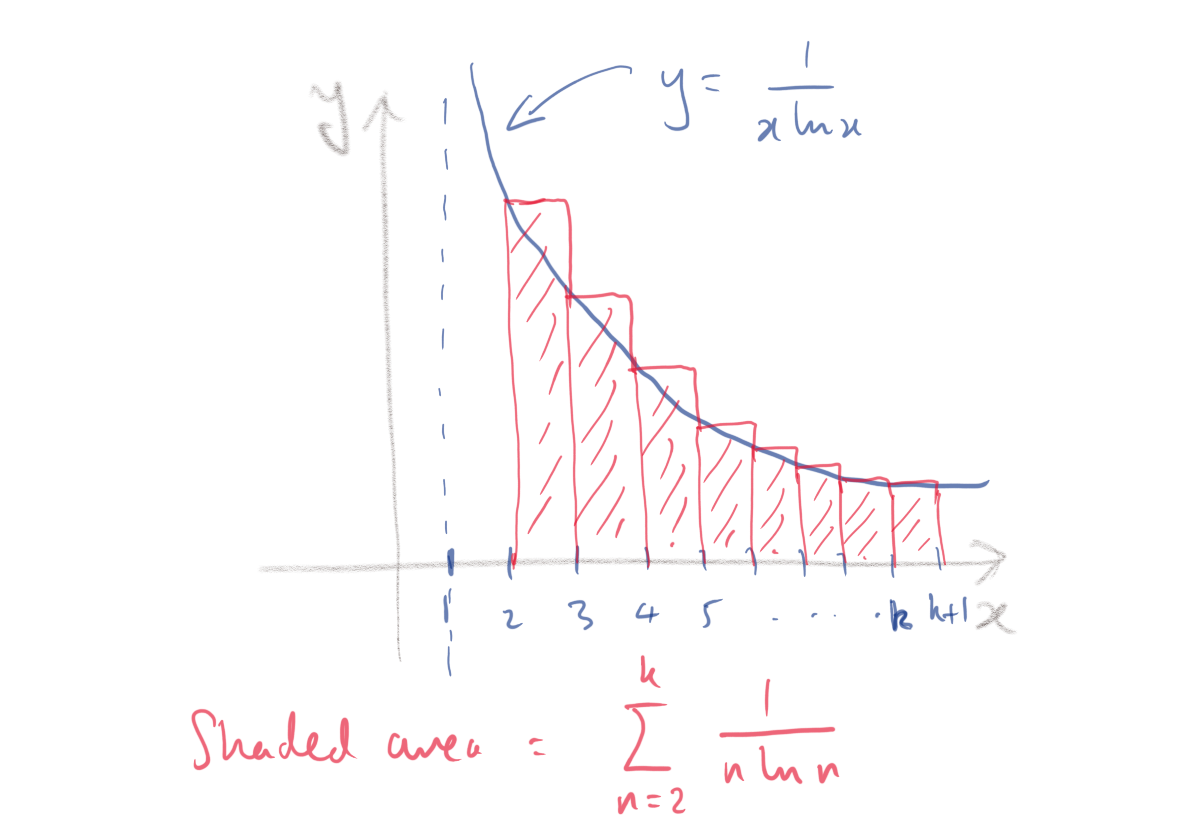 y
y = 1/(x ln x)
1 2 3 4 5 . . . . k k+1 x
Shaded area = ∑_{n=2}^{k} 1/(n ln n)